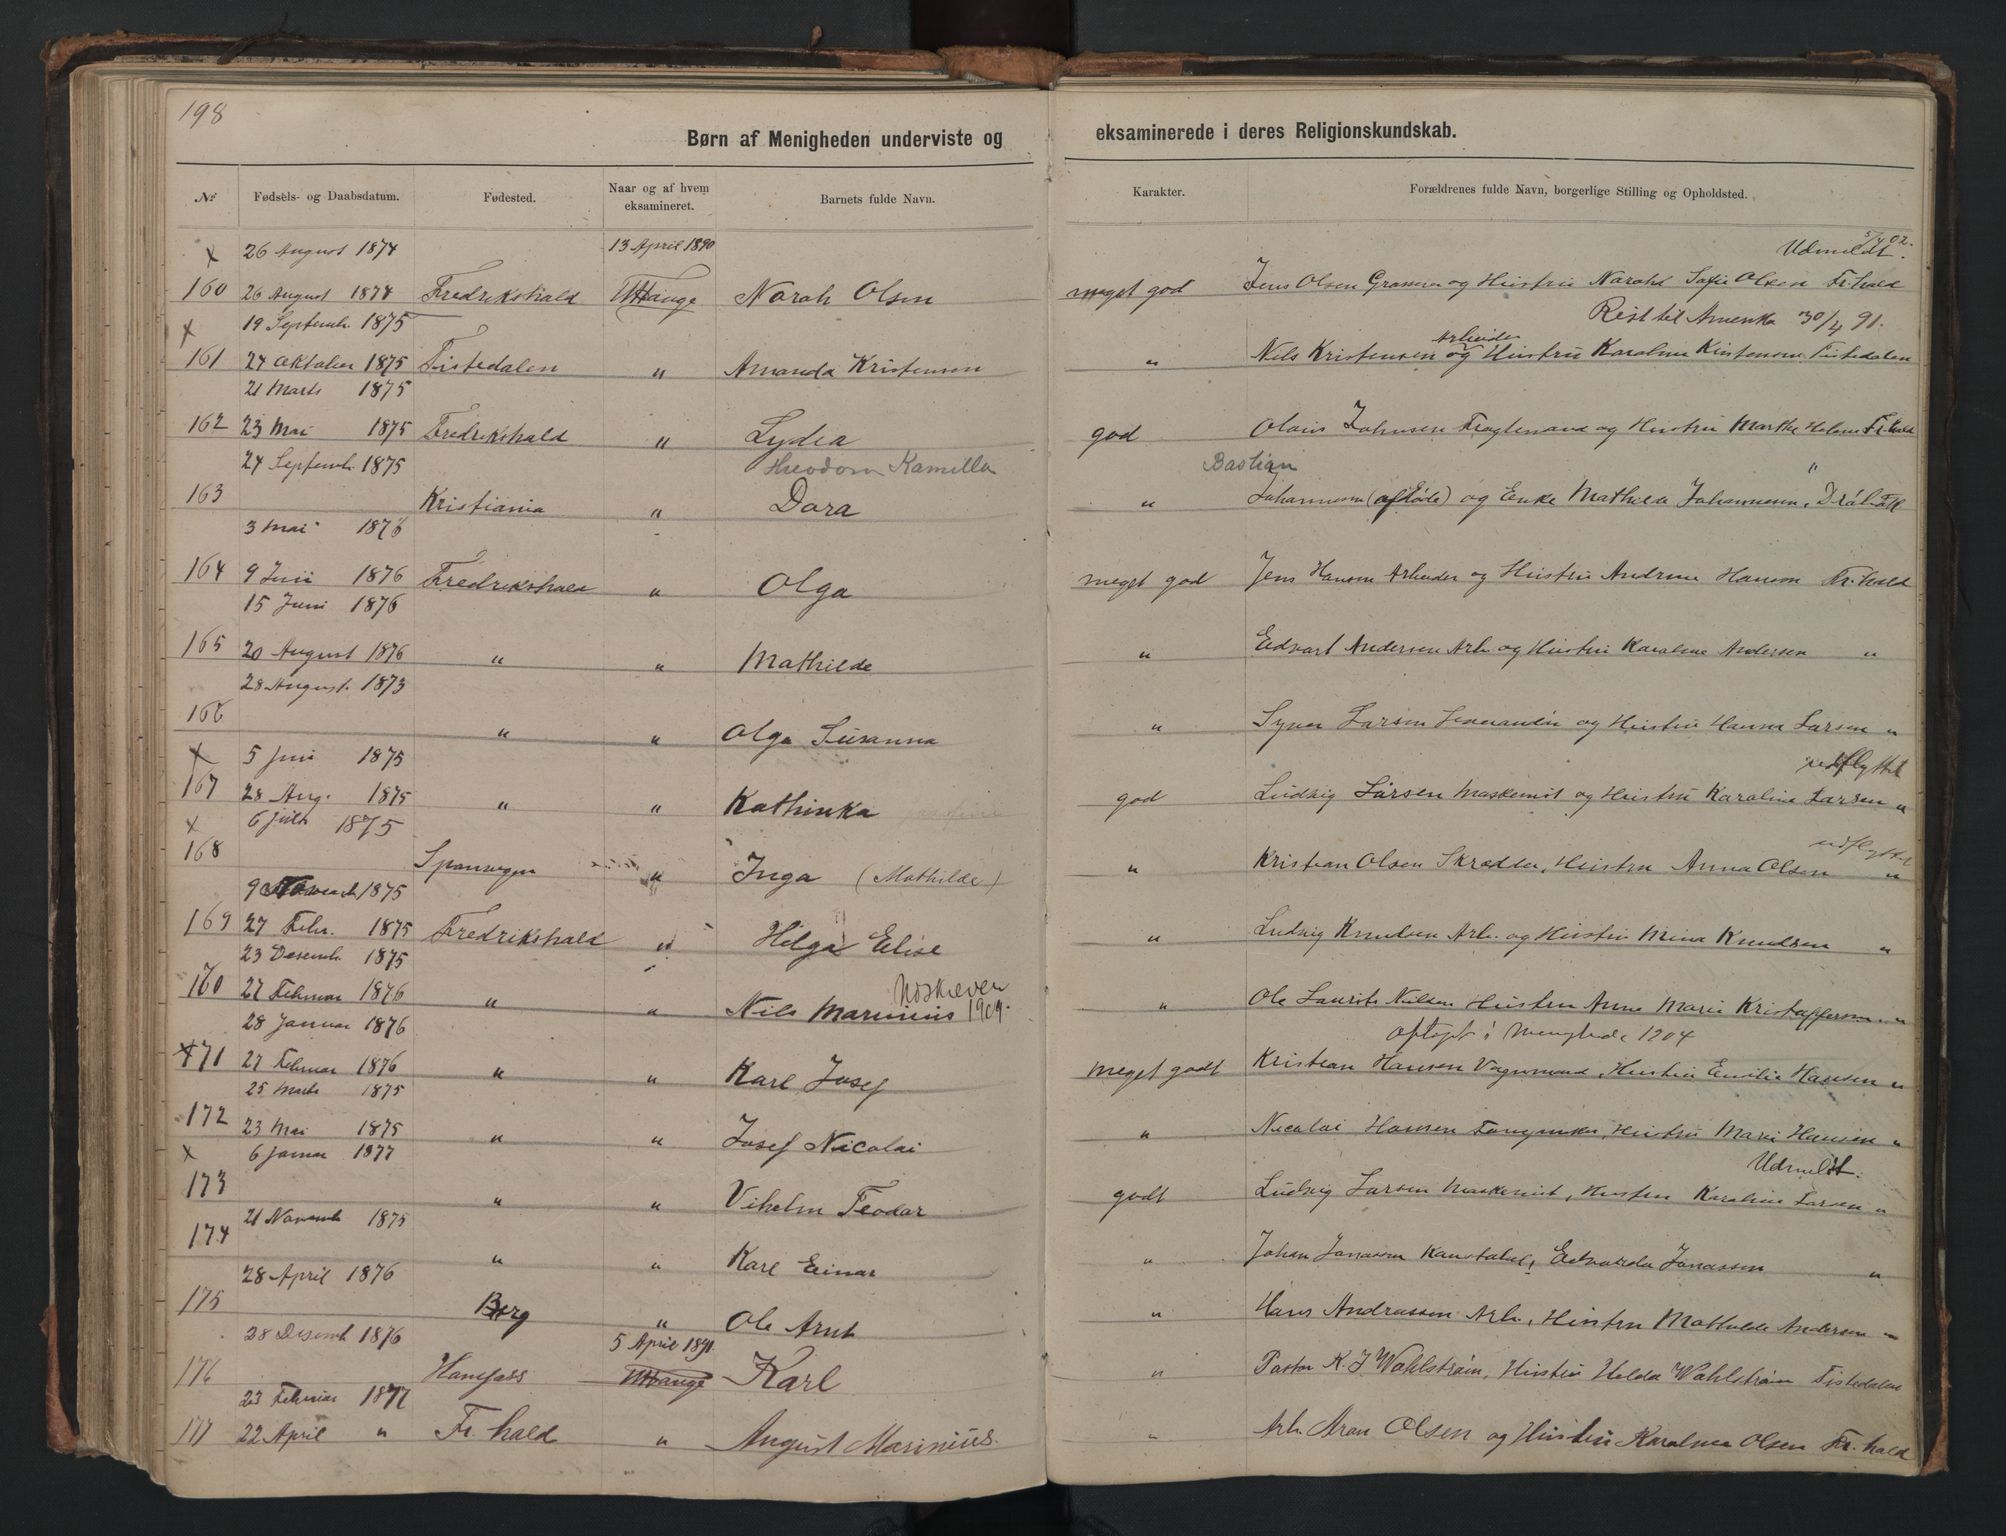 198
Børn af Menigheden underviste og
eksaminerede i deres Religionskundskab.
№ Fødsels- og Daabsdatum. Fødested. Naar og af hvem eksamineret. Barnets fulde Navn. Karakter. Forældrenes fulde Navn, borgerlige Stilling og Opholdsted.
x 26 August 1874 13 April 1890 Udmeldt 5/4 02.
160 26 August 1874 Fredrikshald Norah Olsen meget god Jens Olsen og Hustru Sofie Olsen Fr.hald
x 19 Septemb. 1875 Reist til Amerika 30/4 91.
Arbeider
161 24 Oktober 1875 Tistedalen " Amanda Kristensen " Nils Kristensen og Hustru Karoline Kristensen Tistedalen
21 Marts 1875
162 23 Mai 1875 Fredrikshald " Lydia god Olaus Johnsen og Hustru Marthe Helene Fr.hald
24 Septemb. 1875 Theodora Kamilla Bastian "
163 Kristiania " Dora " Johannesen og Enke Mathilde Johannesen, Drøbak
3 Mai 1876
164 9 Juli 1876 Fredrikshald " Olga meget god Jens Hansen Arbeider og Hustru Andrine Hansen Fr.hald
15 Juni 1876
165 20 August 1876 " " Mathilde " Edvart Andersen Arb. og Hustru Karoline Andersen "
28 August. 1873
166 " " Olga Susanna " Syver Larsen og Hustru Hanna Larsen "
x 5 Juni 1875 udflyttet
167 28 Aug. 1875 " " Kathinka god Ludvig Larsen Maskenist og Hustru Karoline Larsen "
x 6 Juli 1875 udflyttet
168 " Inga (Mathilde) " Kristian Olsen Skrædder, Hustru Anna Olsen "
9 Novemb 1875
169 27 Febr. 1875 Fredrikshald " Helga Elise " Ludvig Knudsen Arb. og Hustru Mina Knudsen "
23 Desemb. 1875
170 27 Februar 1876 " " Nils Marinius 1909. " Ole Laurits Nilsen Hustru Anne Marie Kristoffersen "
28 Januar 1876 Optaget i Menighede 1204
x 171 27 Februar 1876 " " Karl Josef meget godt Kristian Hansen Vognmand, Hustru Emilie Hansen "
25 Marts 1875
172 23 Mai 1875 " " Josef Nicolai " Nicolai Hansen Hustru Marie Hansen "
x 6 Januar 1877 Udmeldt.
173 " " Vihelm Teodor godt Ludvig Larsen Maskenist, Hustru Karoline Larsen "
21 Novemb 1875
174 " " Karl Einar " Johan Jonassen Edvarda Jonassen "
28 April 1876
175 Berg " Ole Arnt " Hans Andreassen Arb., Hustru Mathilde Andersen "
28 Desemb 1876 5 April 1891.
176 Karl " Pastor K. J. Wahlstrøm, Hustru Hulda Wahlstrøm Tistedalen
23 Februar 1877
177 22 April " Fr. hald " August Marinius. " Arb. Aron Olsen og Hustru Karoline Olsen Fr. hald